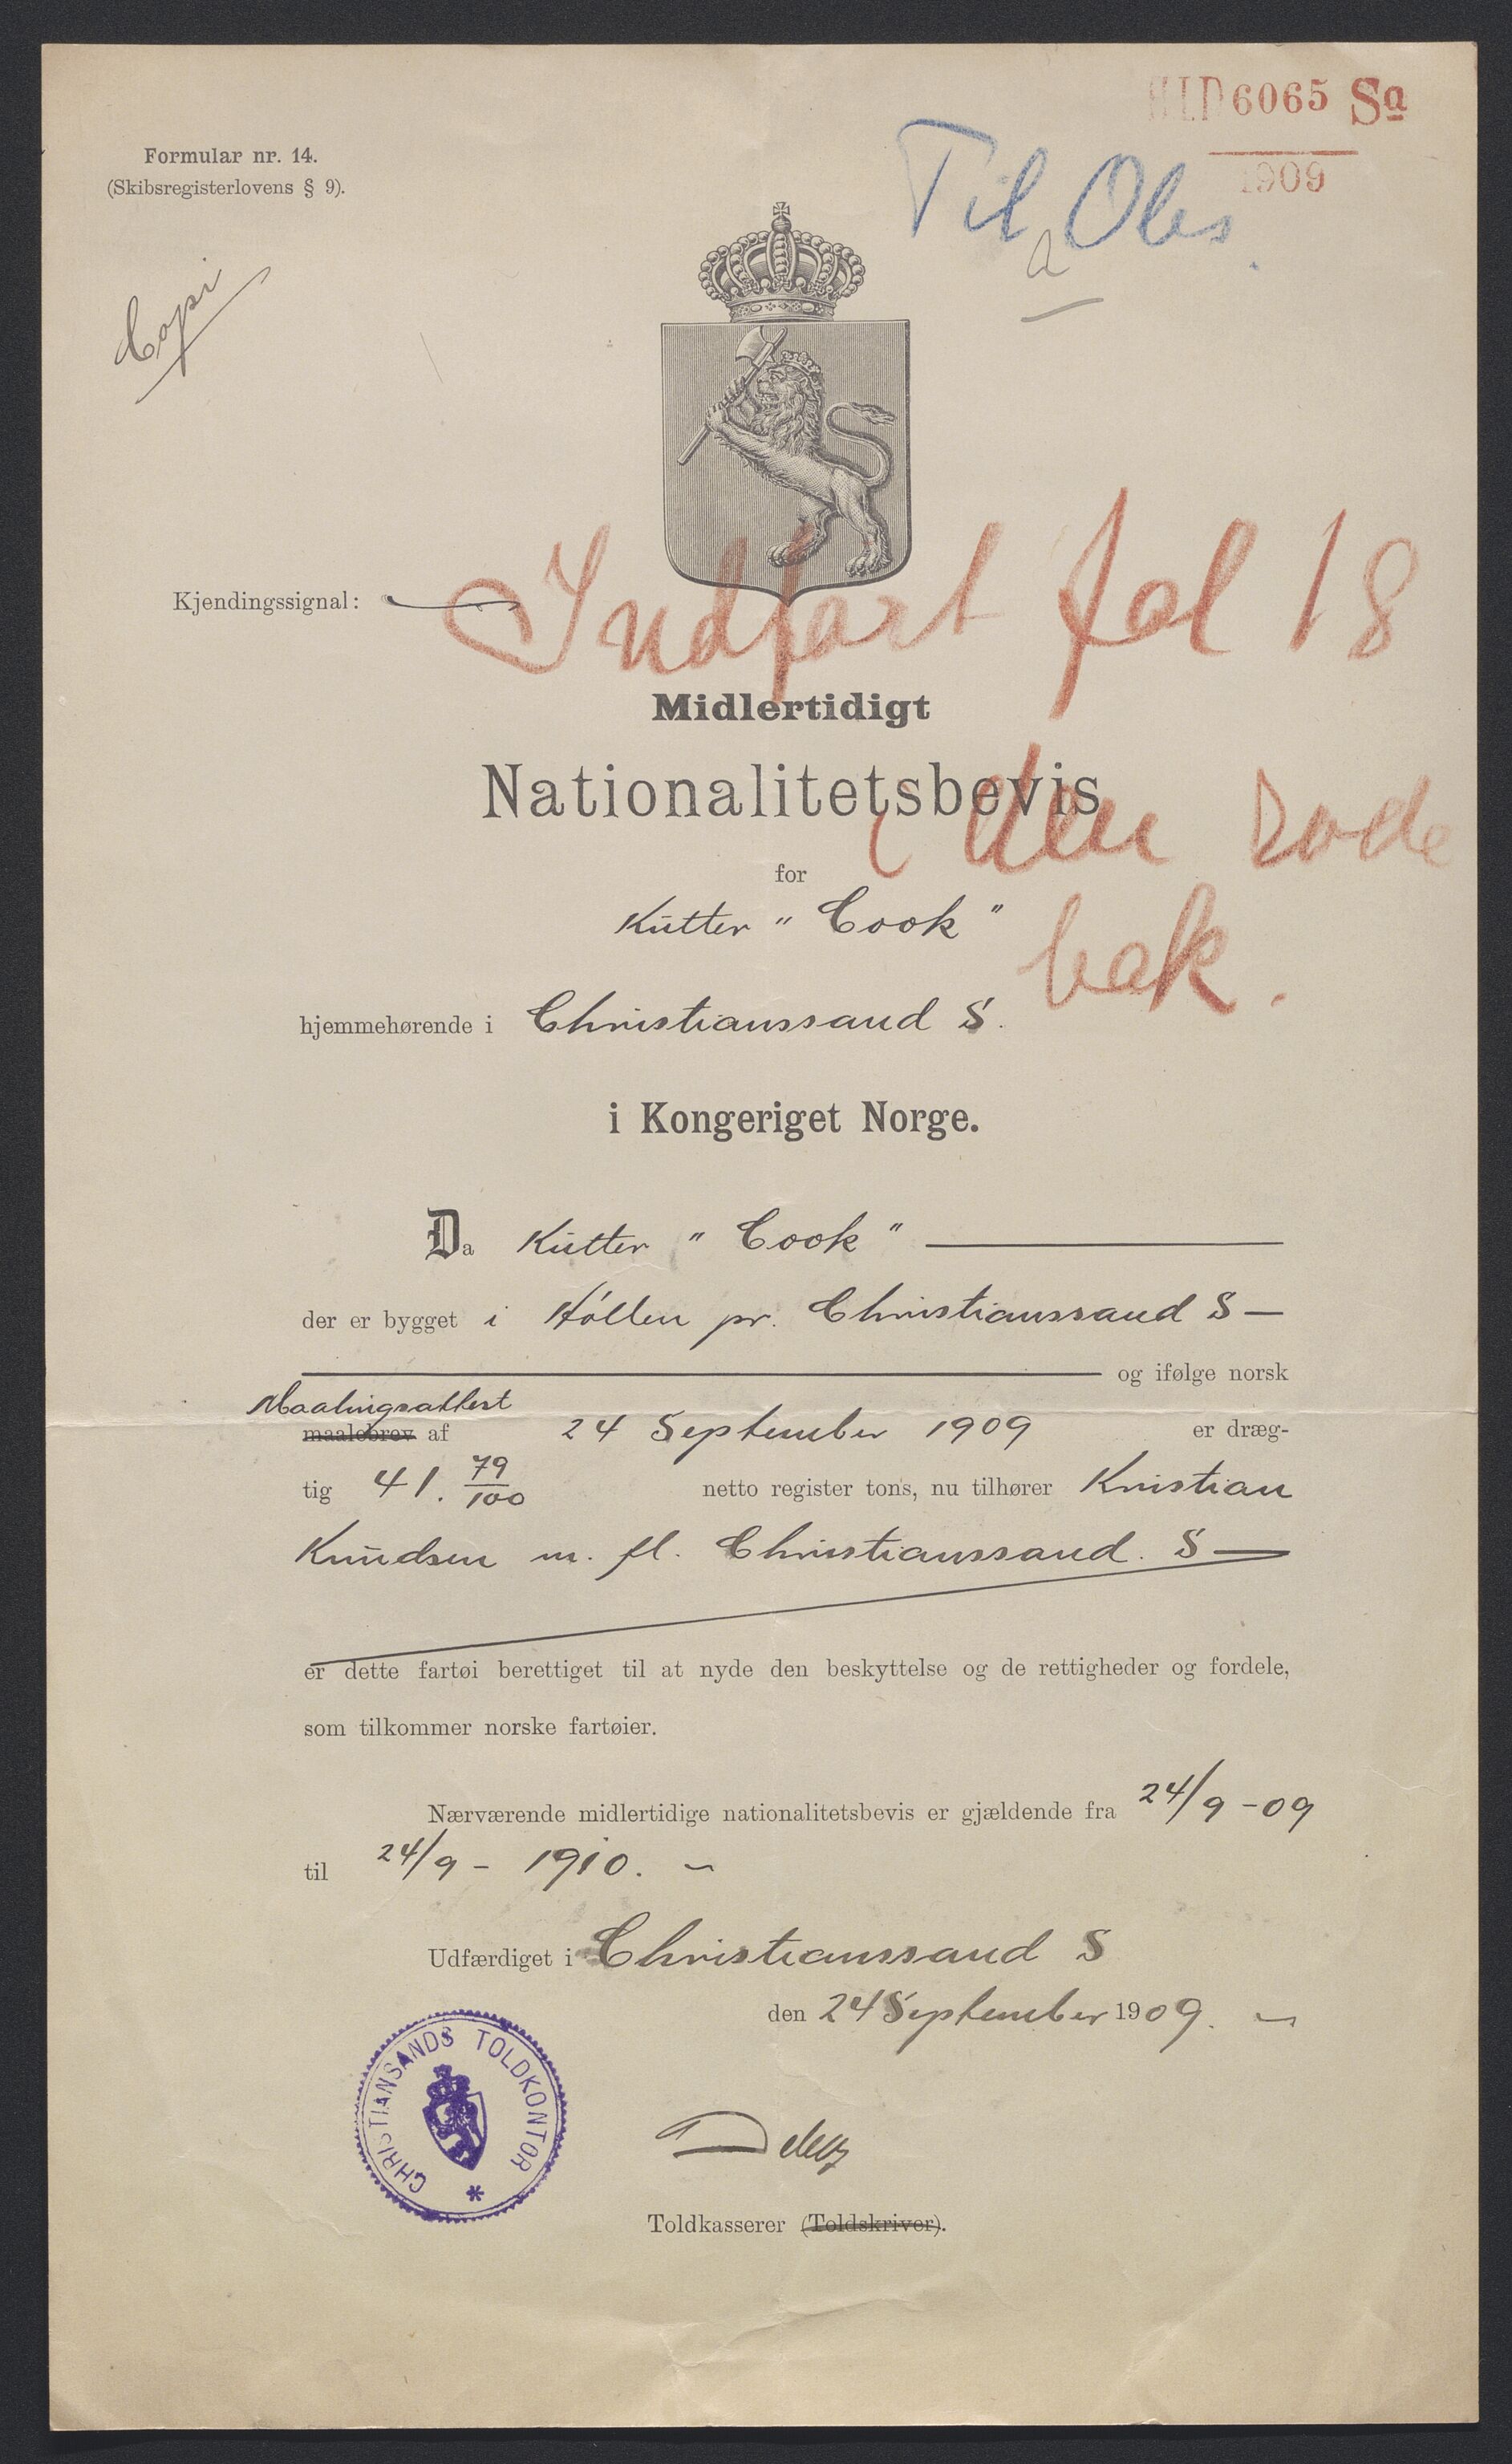 HID 6065 Sa
1909
Formular nr. 14.
(Skibsregisterlovens § 9).
Til Obs.
a
Copi
Kjendingssignal:
Indført fol 18
Midlertidigt
Nationalitetsbevis
i den røde
for
Kutter "Cook"
bok.
hjemmehørende i Christianssand S.
i Kongeriget Norge.
Da Kutter "Cook"
der er bygget i Høllen pr. Christianssand S —
og ifølge norsk
Maalingsattest
maalebrev af 24 September 1909 er dræg-
tig 41. 79/100 netto register tons, nu tilhører Kristian
Knudsen m. fl. Christianssand. S —
er dette fartøi berettiget til at nyde den beskyttelse og de rettigheder og fordele,
som tilkommer norske fartøier.
Nærværende midlertidige nationalitetsbevis er gjældende fra 24/9 - 09
til 24/9 - 1910. -
Udfærdiget i Christianssand S
den 24 September 1909. -
CHRISTIANSANDS TOLDKONTOR
Toldkasserer (Toldskriver).